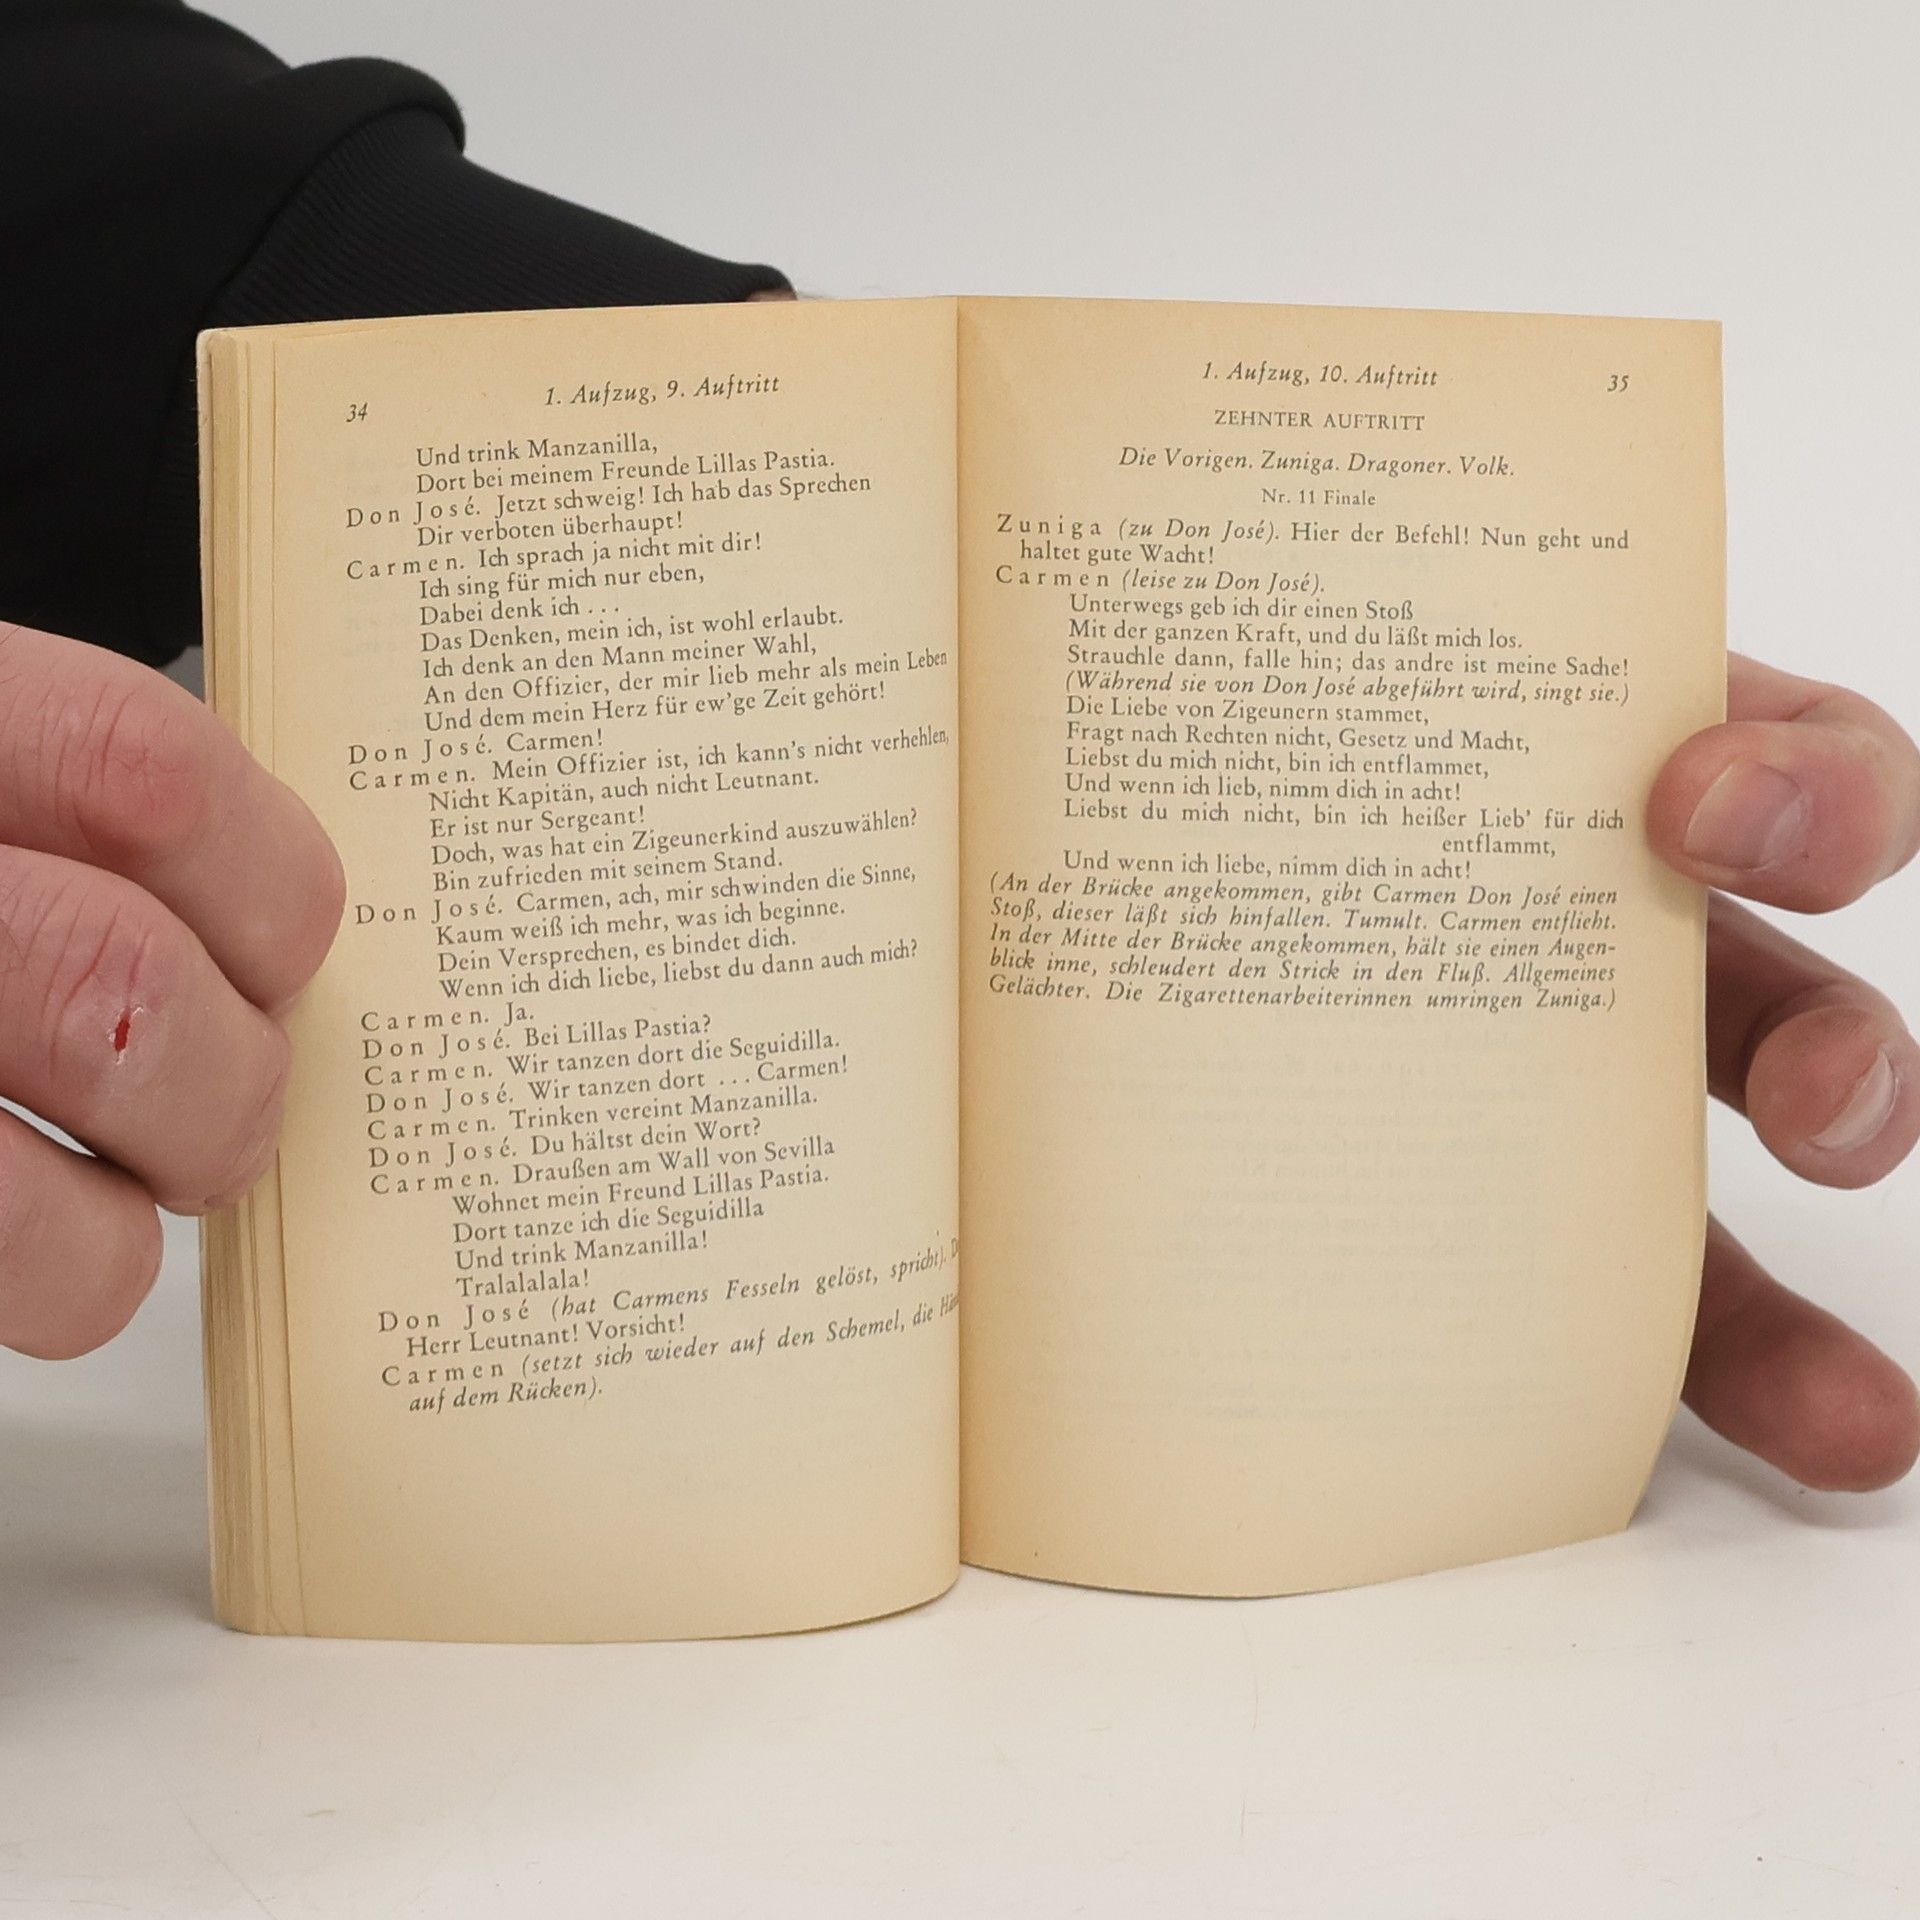 34
1. Aufzug, 9. Auftritt
Und trink Manzanilla,
Dort bei meinem Freunde Lillas Pastia.
Don José. Jetzt schweig! Ich hab das Sprechen
Dir verboten überhaupt!
Carmen. Ich sprach ja nicht mit dir!
Ich sing für mich nur eben,
Dabei denk ich . . .
Das Denken, mein ich, ist wohl erlaubt.
Ich denk an den Mann meiner Wahl,
An den Offizier, der mir lieb mehr als mein Leben
Und dem mein Herz für ew'ge Zeit gehört!
Don José. Carmen!
Carmen. Mein Offizier ist, ich kann's nicht verhehlen,
Nicht Kapitän, auch nicht Leutnant.
Er ist nur Sergeant!
Doch, was hat ein Zigeunerkind auszuwählen?
Bin zufrieden mit seinem Stand.
Don José. Carmen, ach, mir schwinden die Sinne,
Kaum weiß ich mehr, was ich beginne.
Dein Versprechen, es bindet dich.
Wenn ich dich liebe, liebst du dann auch mich?
Carmen. Ja.
Don José. Bei Lillas Pastia?
Carmen. Wir tanzen dort die Seguidilla.
Don José. Wir tanzen dort ... Carmen!
Carmen. Trinken vereint Manzanilla.
Don José. Du hältst dein Wort?
Carmen. Draußen am Wall von Sevilla
Wohnet mein Freund Lillas Pastia.
Dort tanze ich die Seguidilla
Und trink Manzanilla!
Tralalalala!
Don José (hat Carmens Fesseln gelöst, spricht).
Herr Leutnant! Vorsicht!
Carmen (setzt sich wieder auf den Schemel, die
auf dem Rücken).
1. Aufzug, 10. Auftritt
35
ZEHNTER AUFTRITT
Die Vorigen. Zuniga. Dragoner. Volk.
Nr. 11 Finale
Zuniga (zu Don José). Hier der Befehl! Nun geht und
haltet gute Wacht!
Carmen (leise zu Don José).
Unterwegs geb ich dir einen Stoß
Mit der ganzen Kraft, und du läßt mich los.
Strauchle dann, falle hin; das andre ist meine Sache!
(Während sie von Don José abgeführt wird, singt sie.)
Die Liebe von Zigeunern stammet,
Fragt nach Rechten nicht, Gesetz und Macht,
Liebst du mich nicht, bin ich entflammet,
Und wenn ich lieb, nimm dich in acht!
Liebst du mich nicht, bin ich heißer Lieb' für dich
entflammt,
Und wenn ich liebe, nimm dich in acht!
(An der Brücke angekommen, gibt Carmen Don José einen
Stoß, dieser läßt sich hinfallen. Tumult. Carmen entflieht.
In der Mitte der Brücke angekommen, hält sie einen Augen-
blick inne, schleudert den Strick in den Fluß. Allgemeines
Gelächter. Die Zigarettenarbeiterinnen umringen Zuniga.)